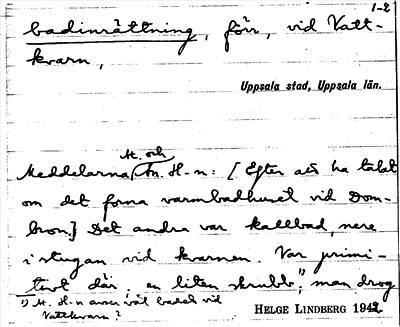 1-2
badinrättning, förr, vid Vatt-
kvarn,
Uppsala stad, Uppsala län.
M. och
Meddelarna An. H-n: [Efter att ha talat
om det forna varmbadhuset vid Dom-
bron.] Det andra var kallbad, nere
i stugan vid kvarnen. Var primi-
tivt där, en liten skrubb,¹⁾ man drog
¹⁾ M. H-n anser väl badet vid
Vattkvarn?
HELGE LINDBERG 1942